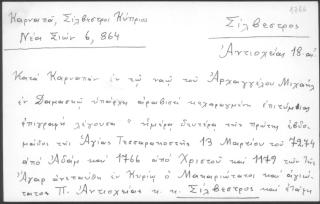 1766
Καρναπᾶ, Σίλβεστρος Κύπριος
Νέα Σιών 6, 864
Σίλβεστρος
Ἀντιοχείας 18-αι
Κατὰ Καρναπᾶν ἐν τῷ ναῷ τοῦ Ἀρχαγγέλου Μιχαὴλ
ἐν Δαμασκῷ ὑπάρχει ἀραβιστὶ κεχαραγμένη ἐπιτύμβιος
ἐπιγραφὴ λέγουσα " ἡμέρᾳ δευτέρᾳ τῆς πρώτης ἑβδο-
μάδος τῆς Ἁγίας Τεσσαρακοστῆς 13 Μαρτίου τοῦ 7274
ἀπὸ Ἀδὰμ καὶ 1766 ἀπὸ Χριστοῦ καὶ 1179 τῶν τῆς
Ἄγαρ ἀνεπαύθη ἐν Κυρίῳ ὁ Μακαριώτατος καὶ ἁγιώ-
τατος Π. Ἀντιοχείας κ. κ. Σίλβεστρος καὶ ἐτάφη